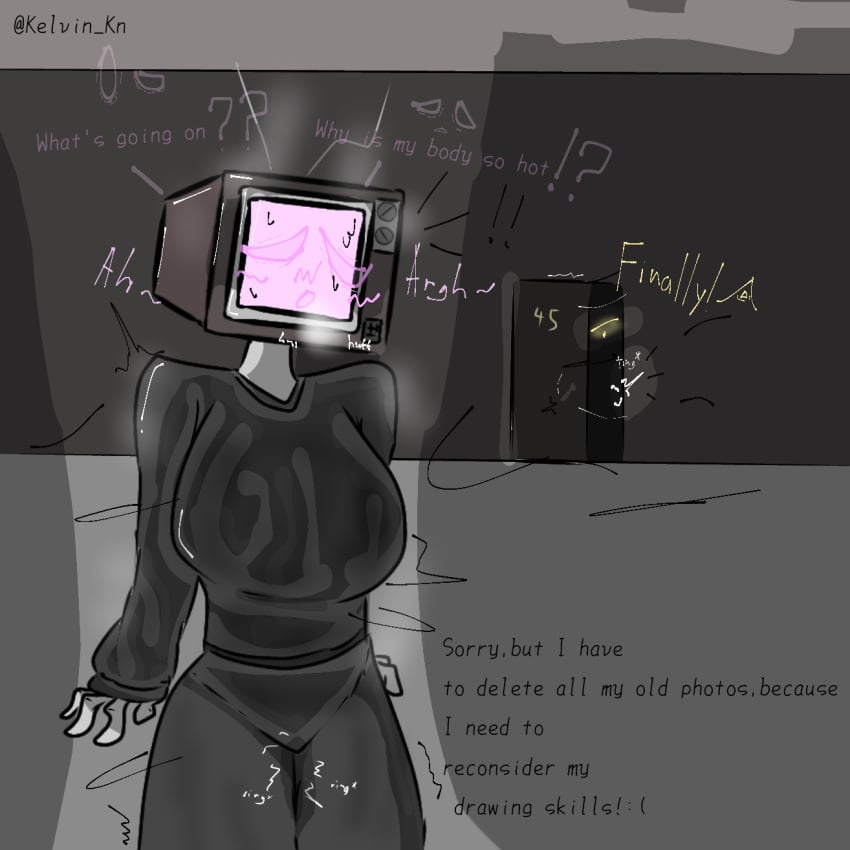 @Kelvin_Kn
What's going on ??
Why is my body so hot!?
!!
Ah~
Argh~
Finally!
45
*ring*
huff
Sorry,but I have
to delete all my old photos,because
I need to
reconsider my
drawing skills!:(